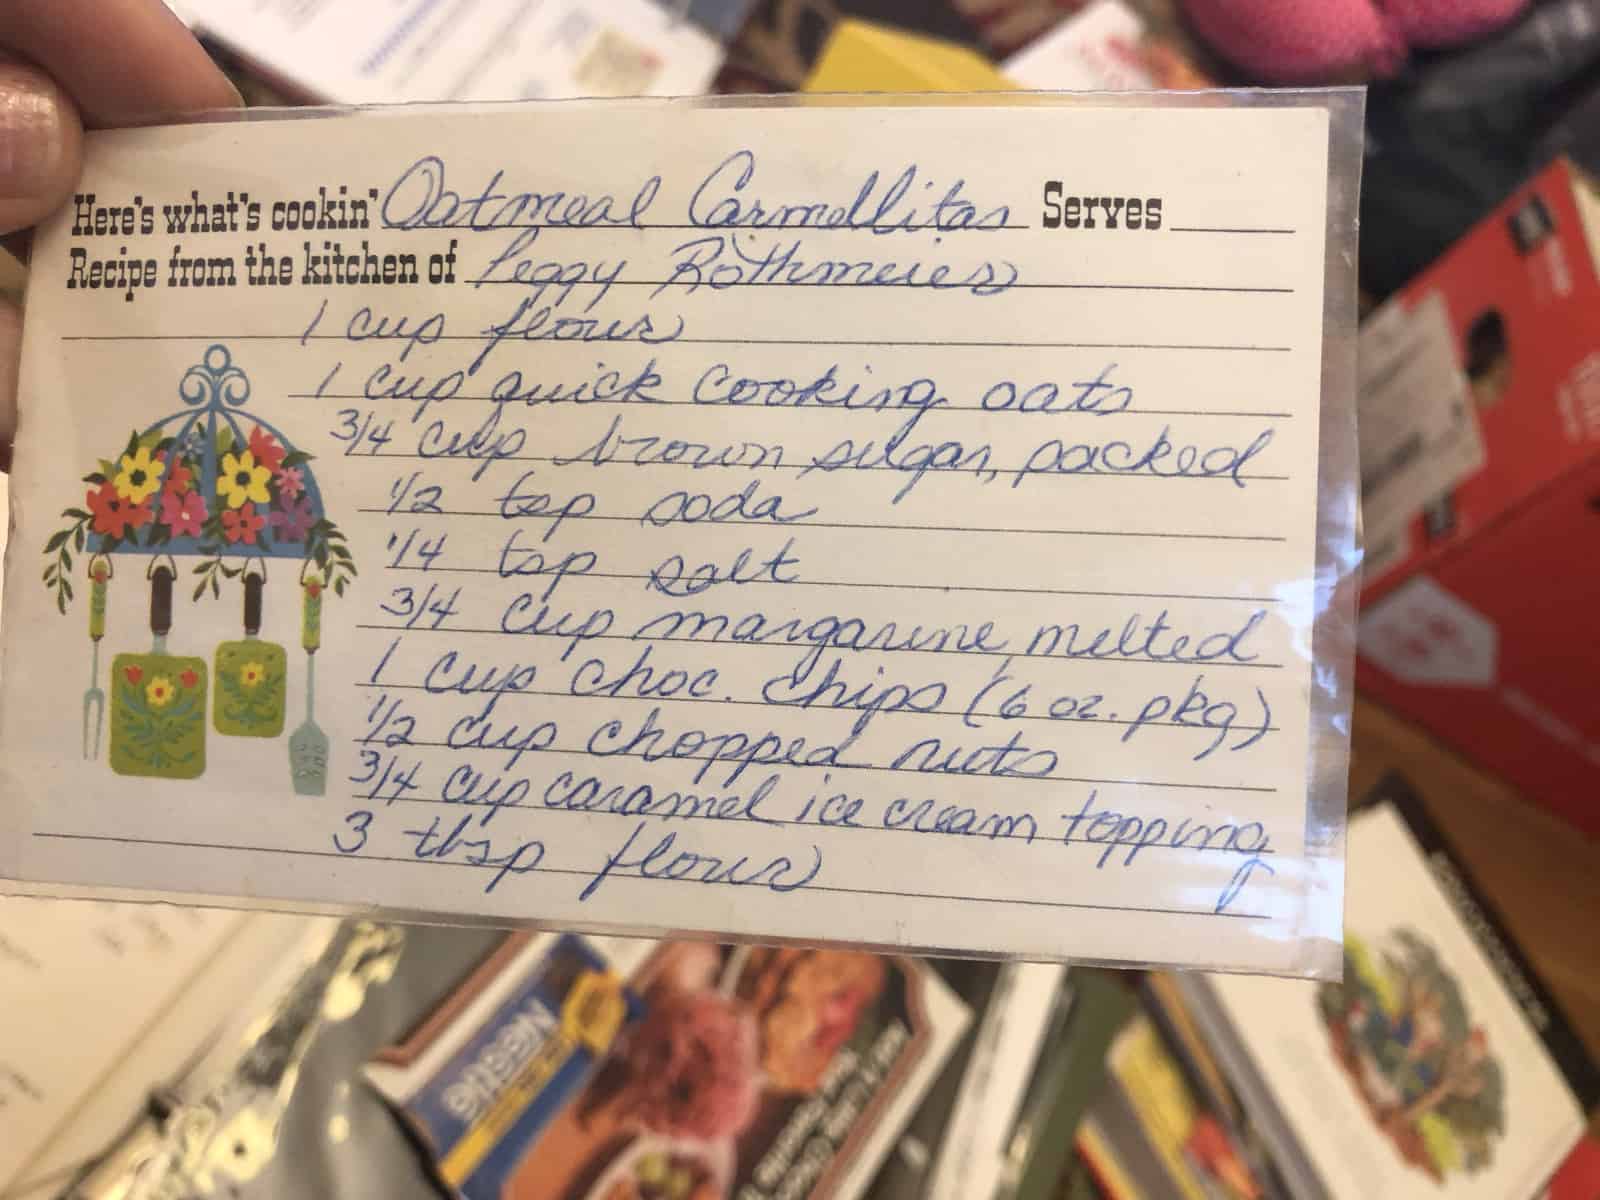 Here's what's cookin' Oatmeal Carmellitas Serves
Recipe from the kitchen of Peggy Rothmeier
1 cup flour
1 cup quick cooking oats
3/4 cup brown sugar, packed
1/2 tsp soda
1/4 tsp salt
3/4 cup margarine, melted
1 cup choc. chips (6 oz. pkg)
1/2 cup chopped nuts
3/4 cup caramel ice cream topping
3 tbsp flour
Nestlé